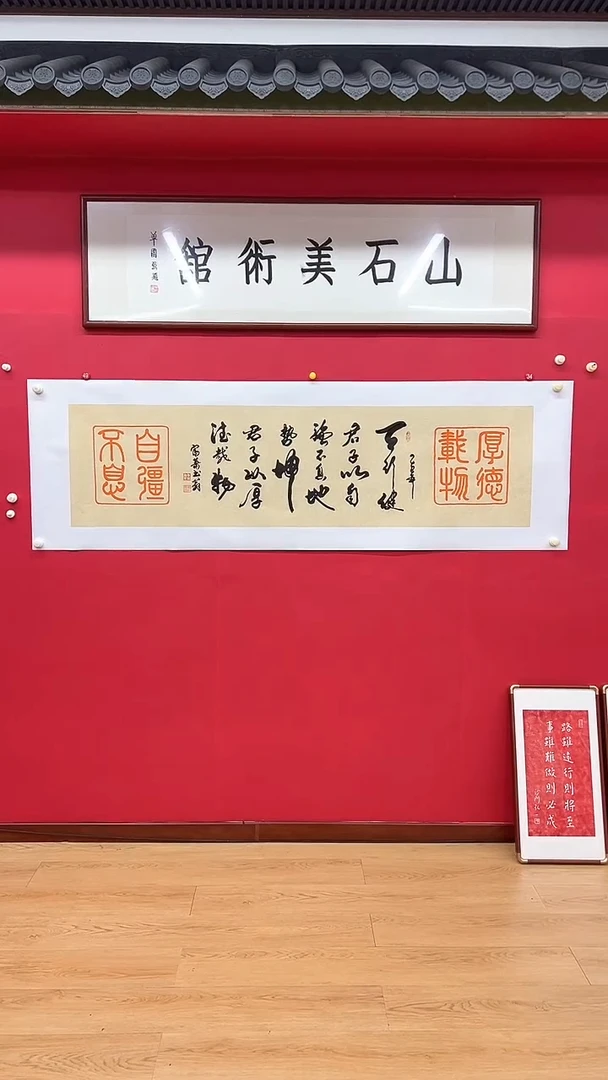 山石美術館
厚德
載物
天行健
君子以自
强不息地
勢坤
君子以厚
德載物
自彊
不息
路雖遠行則將至
事雖難做則必成